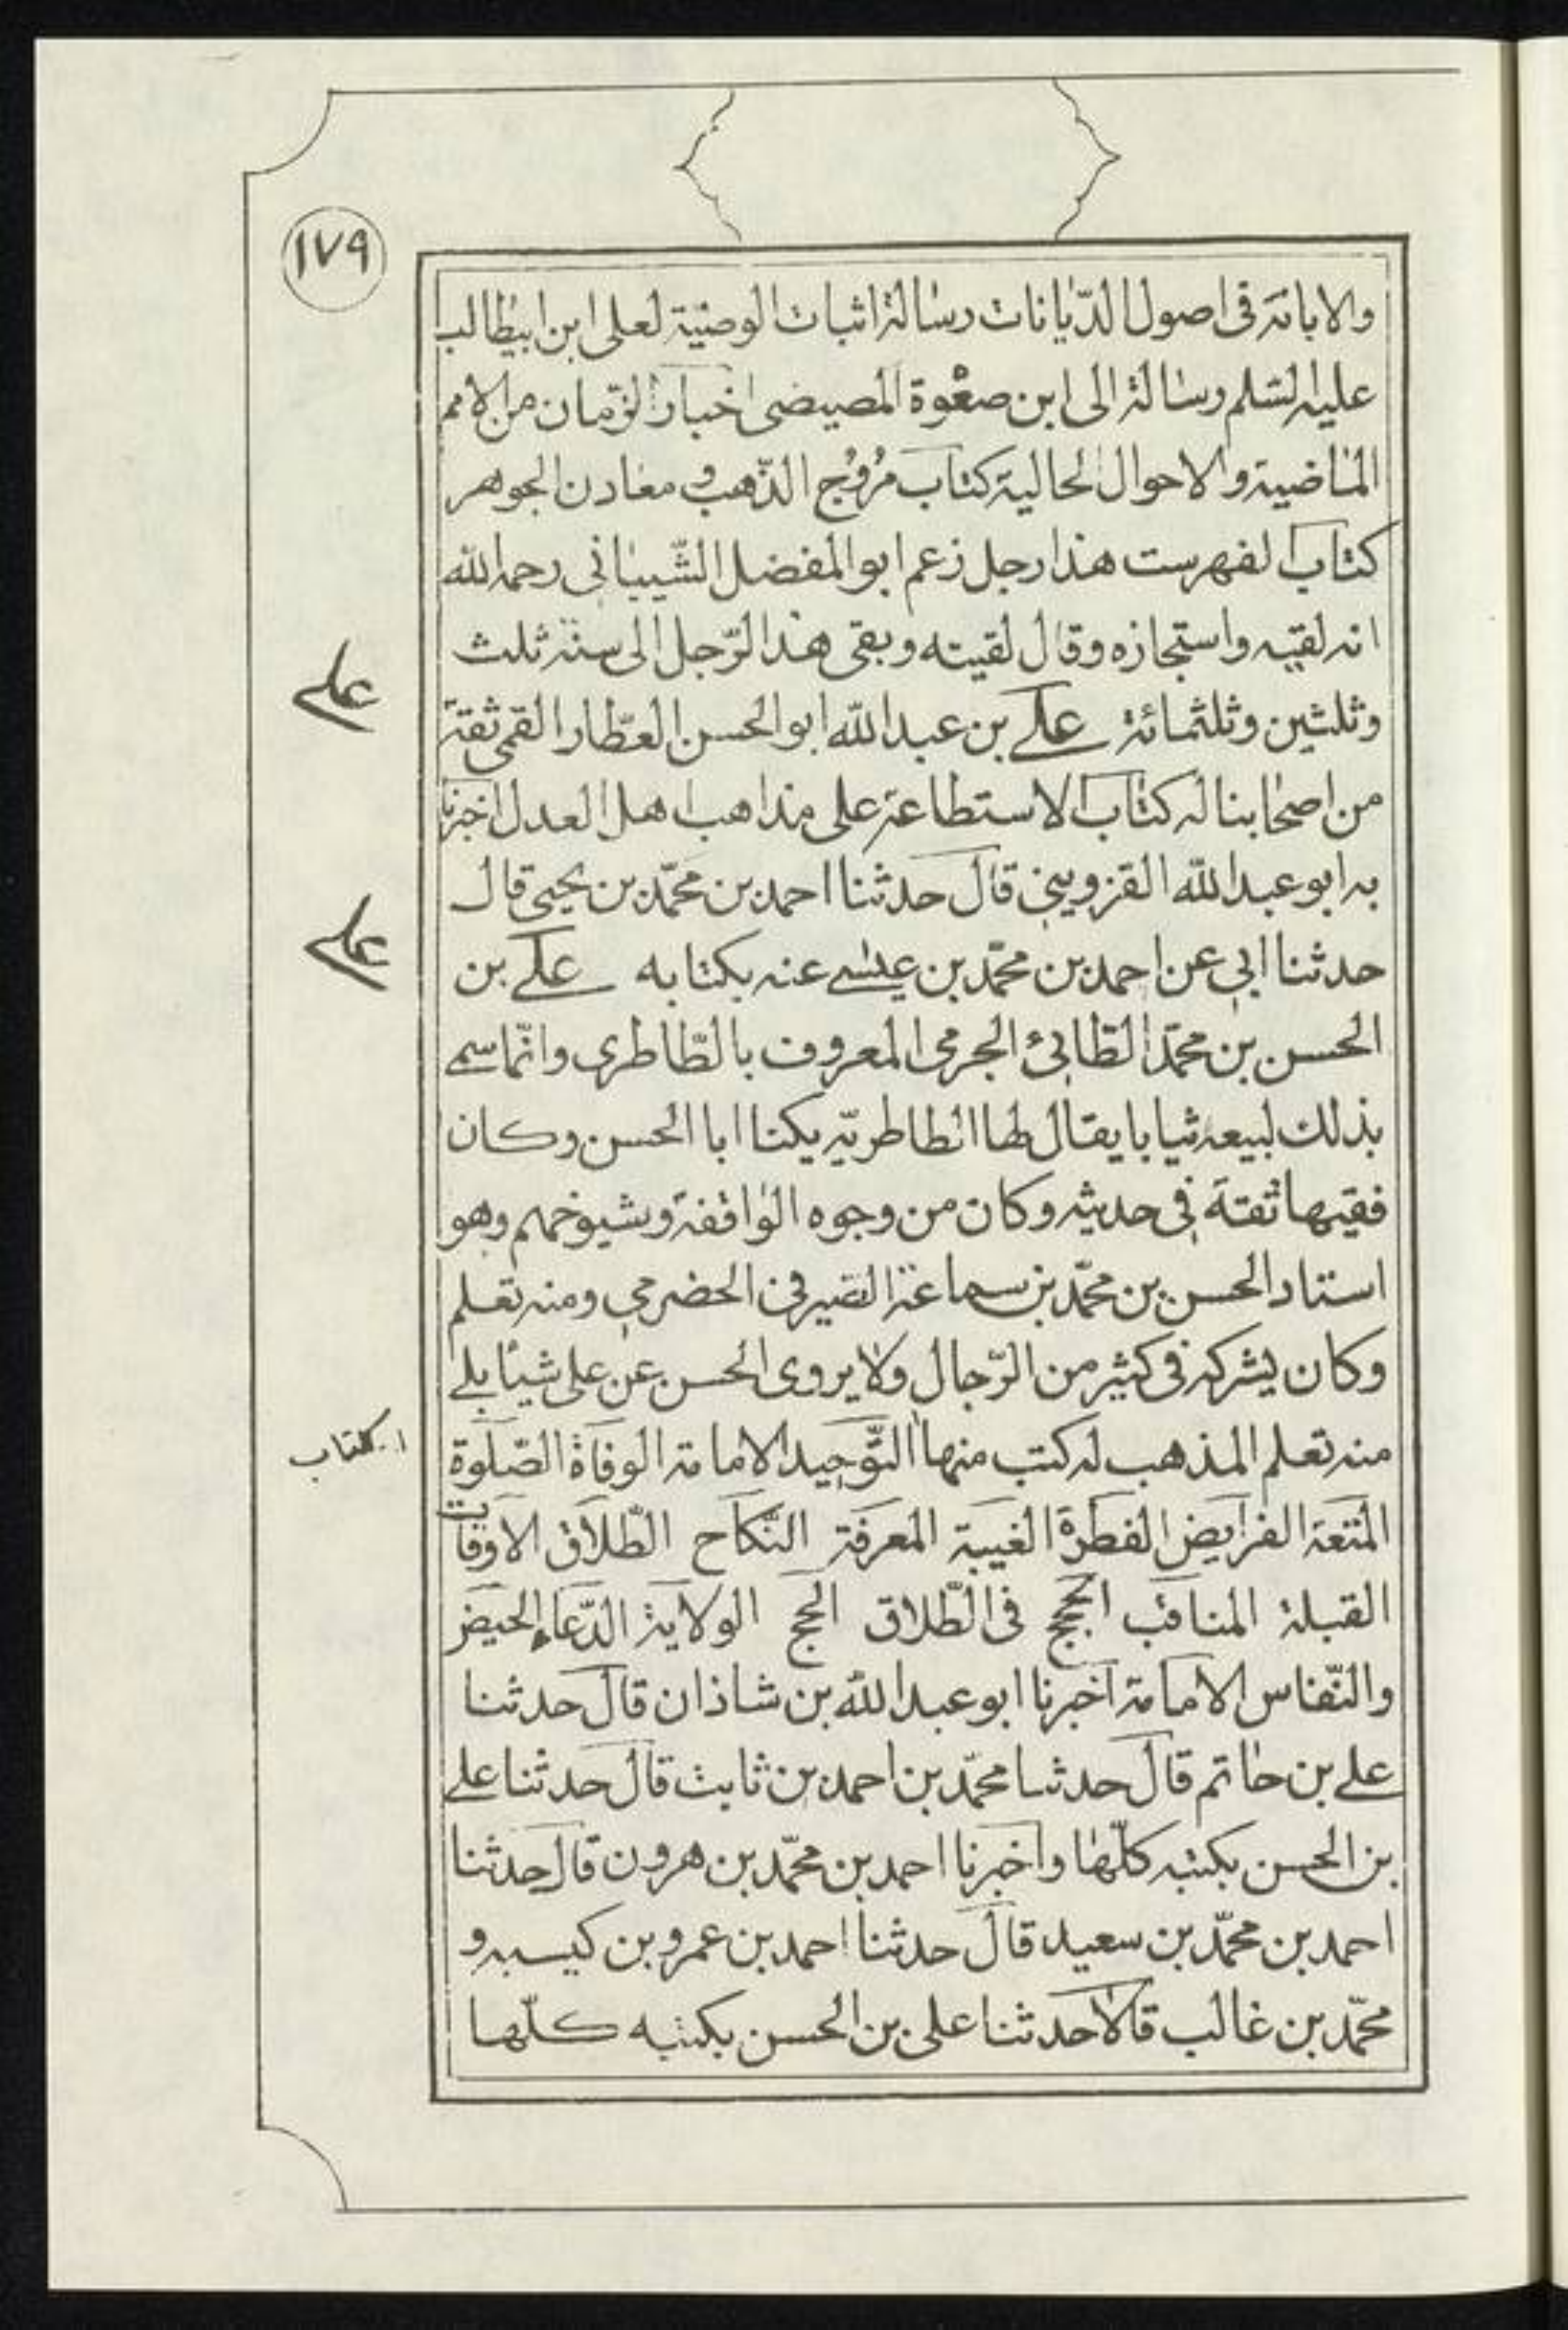 ١٧٩
والابانة فى اصول الدّيانات رسالة اثبات الوصية لعلى ابن ابيطالب
عليه السلم رسالة الى ابن صعْوة المصيصى اخبار الزّمان من الامم
الماضية والاحوال الحالية كتاب مُرُوُج الذّهب و معادن الجوهر
كتاب الفهرست هذا رجل زعم ابو المفضل الشّيبانى رحمه الله
انه لقيه واستجازه وقال لقيته وبقى هذا الرّجل الى سنة ثلث
علي
وثلثين وثلثمائة علي بن عبد الله ابو الحسن العطّار القمى ثقة
من اصحابنا له كتاب الاستطاعة على مذاهب اهل العدل اخبرنا
به ابو عبد الله القزوينى قال حدثنا احمد بن محمّد بن يحيى قال
علي
حدثنا ابى عن احمد بن محمّد بن عيسى عنه بكتابه علي بن
الحسن بن محمّد الطّائىء الجرمى المعروف بالطّاطرى وانّما سمى
بذلك لبيعه ثيابا يقال لها الطاطريّه يكنا ابا الحسن وكان
فقيها ثقة فى حديثه وكان من وجوه الواقفة وشيوخهم وهو
استاد الحسن بن محمّد بن سماعة الصّيرفى الحضرمى ومنه تعلم
وكان يشركه فى كثير من الرّجال ولا يروى الحسن عن على شيئا بلى
ا. كتاب
منه تعلم المذهب له كتب منها التّوحيد الامامة الوفاة الصّلوة
المتعة الفرايض الفطرة الغيبة المعرفة النّكاح الطّلاق الاوقات
القبلة المناقب الحجج فى الطّلاق الحج الولاية الدّعاء الحيض
والنّفاس الامامة اخبرنا ابو عبد الله بن شاذان قال حدثنا
على بن حاتم قال حدثنا محمّد بن احمد بن ثابت قال حدثنا على
بن الحسن بكتبه كلّها واخبرنا احمد بن محمّد بن هرون قال حدثنا
احمد بن محمّد بن سعيد قال حدثنا احمد بن عمرو بن كيسبه و
محمّد بن غالب قالا حدثنا على بن الحسن بكتبه كلّها